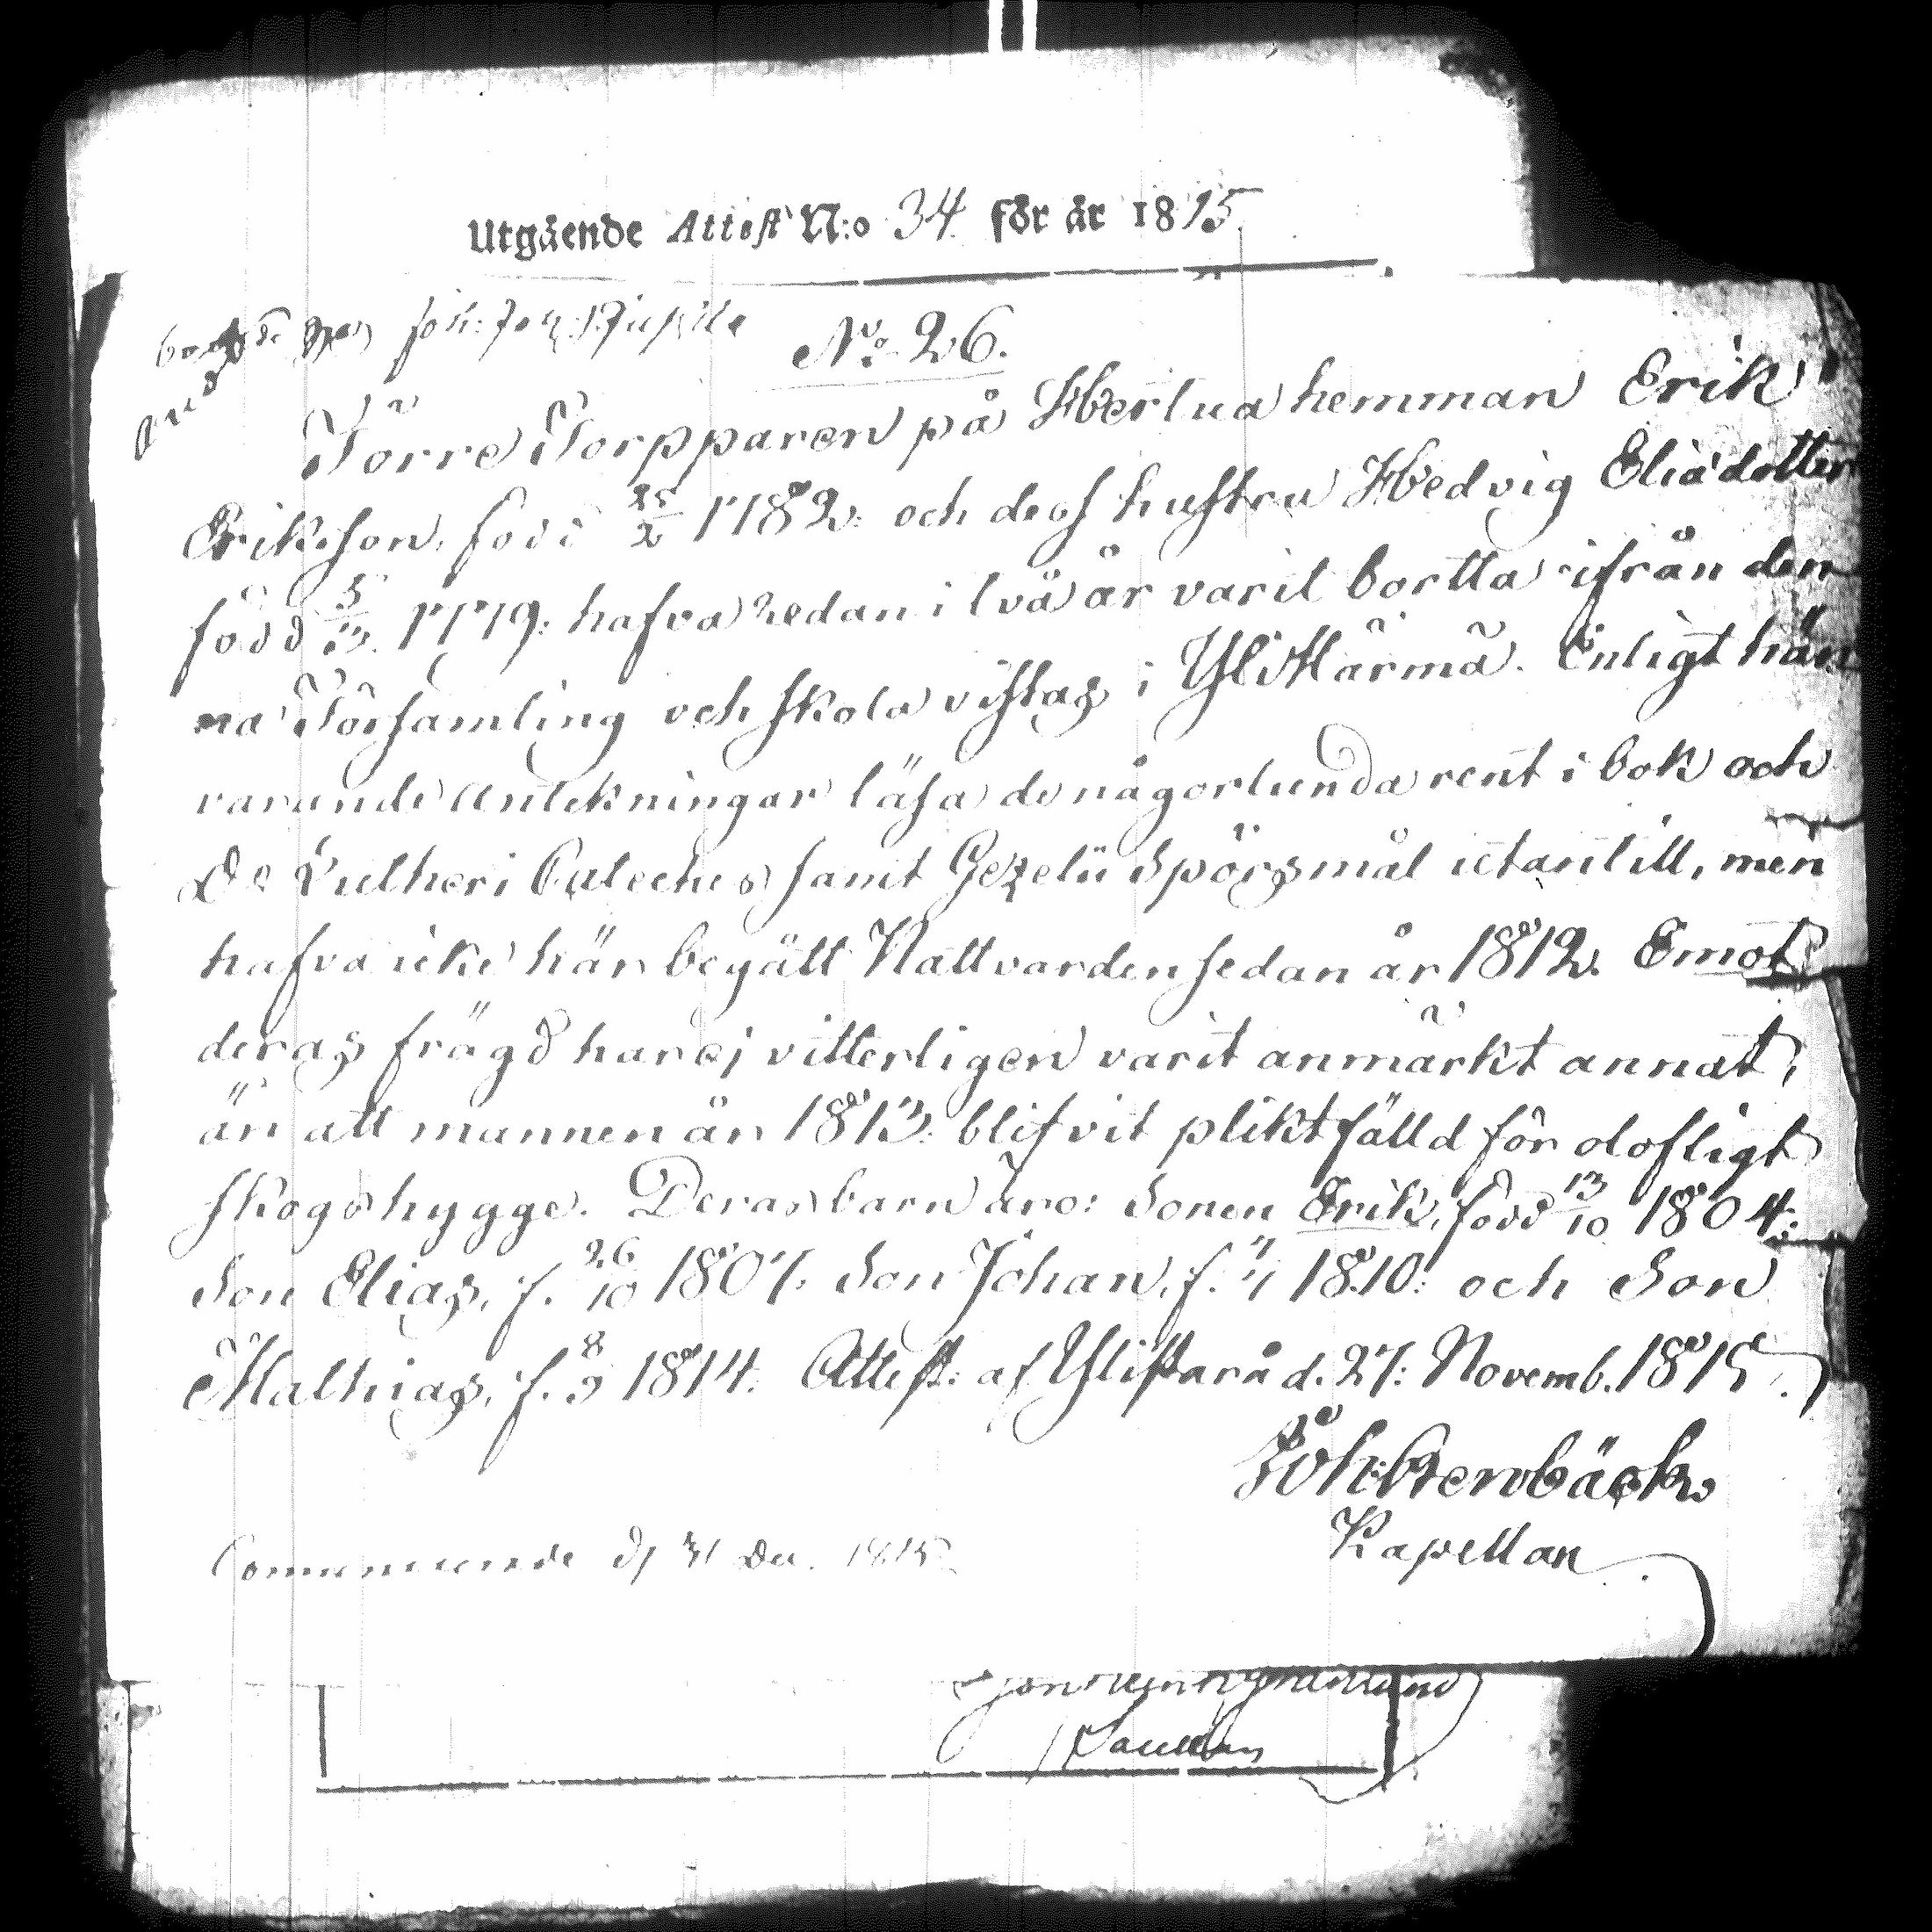 Utgående Attest N:o 34 för år 1815.
N:o 26.
Förre Torpparen på Herlua hemman Erik
Eriksson, född 25/2 1782. och dess hustru Hedvig Eliædotter
född 5/3. 1779: hafva redan i två år varit bortta ifrån den
na Församling och skola vistas i YliHärmä. Enligt hän
varande Antekningar läsa de någorlunda rent i bok och
D:o Lutheri Cateches samt Gezelii Spörsmål utantill, men
hafva icke här begått Nattvarden sedan år 1812. Emot
deras frägd har ej vitterligen varit anmärkt annat,
än att mannen år 1813: blifvit pliktfälld för olofligt
skogshygge. Deras barn äro: Sonen Erik, född 13/10 1804:
Son Elias, f. 26/10 1807. Son Johan, f. 1810: och Son
Mathias, f. 8/9 1814. Attest: af Ylistarå d. 27: Novemb. 1815.
Joh: Brenbäck
Kapellan
Communicerade d 31 Dec. 1815.